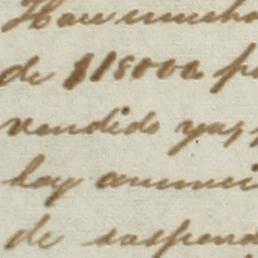 Hace mucho
de $18000 p
vendido ya,
hoy anunci
de suspend